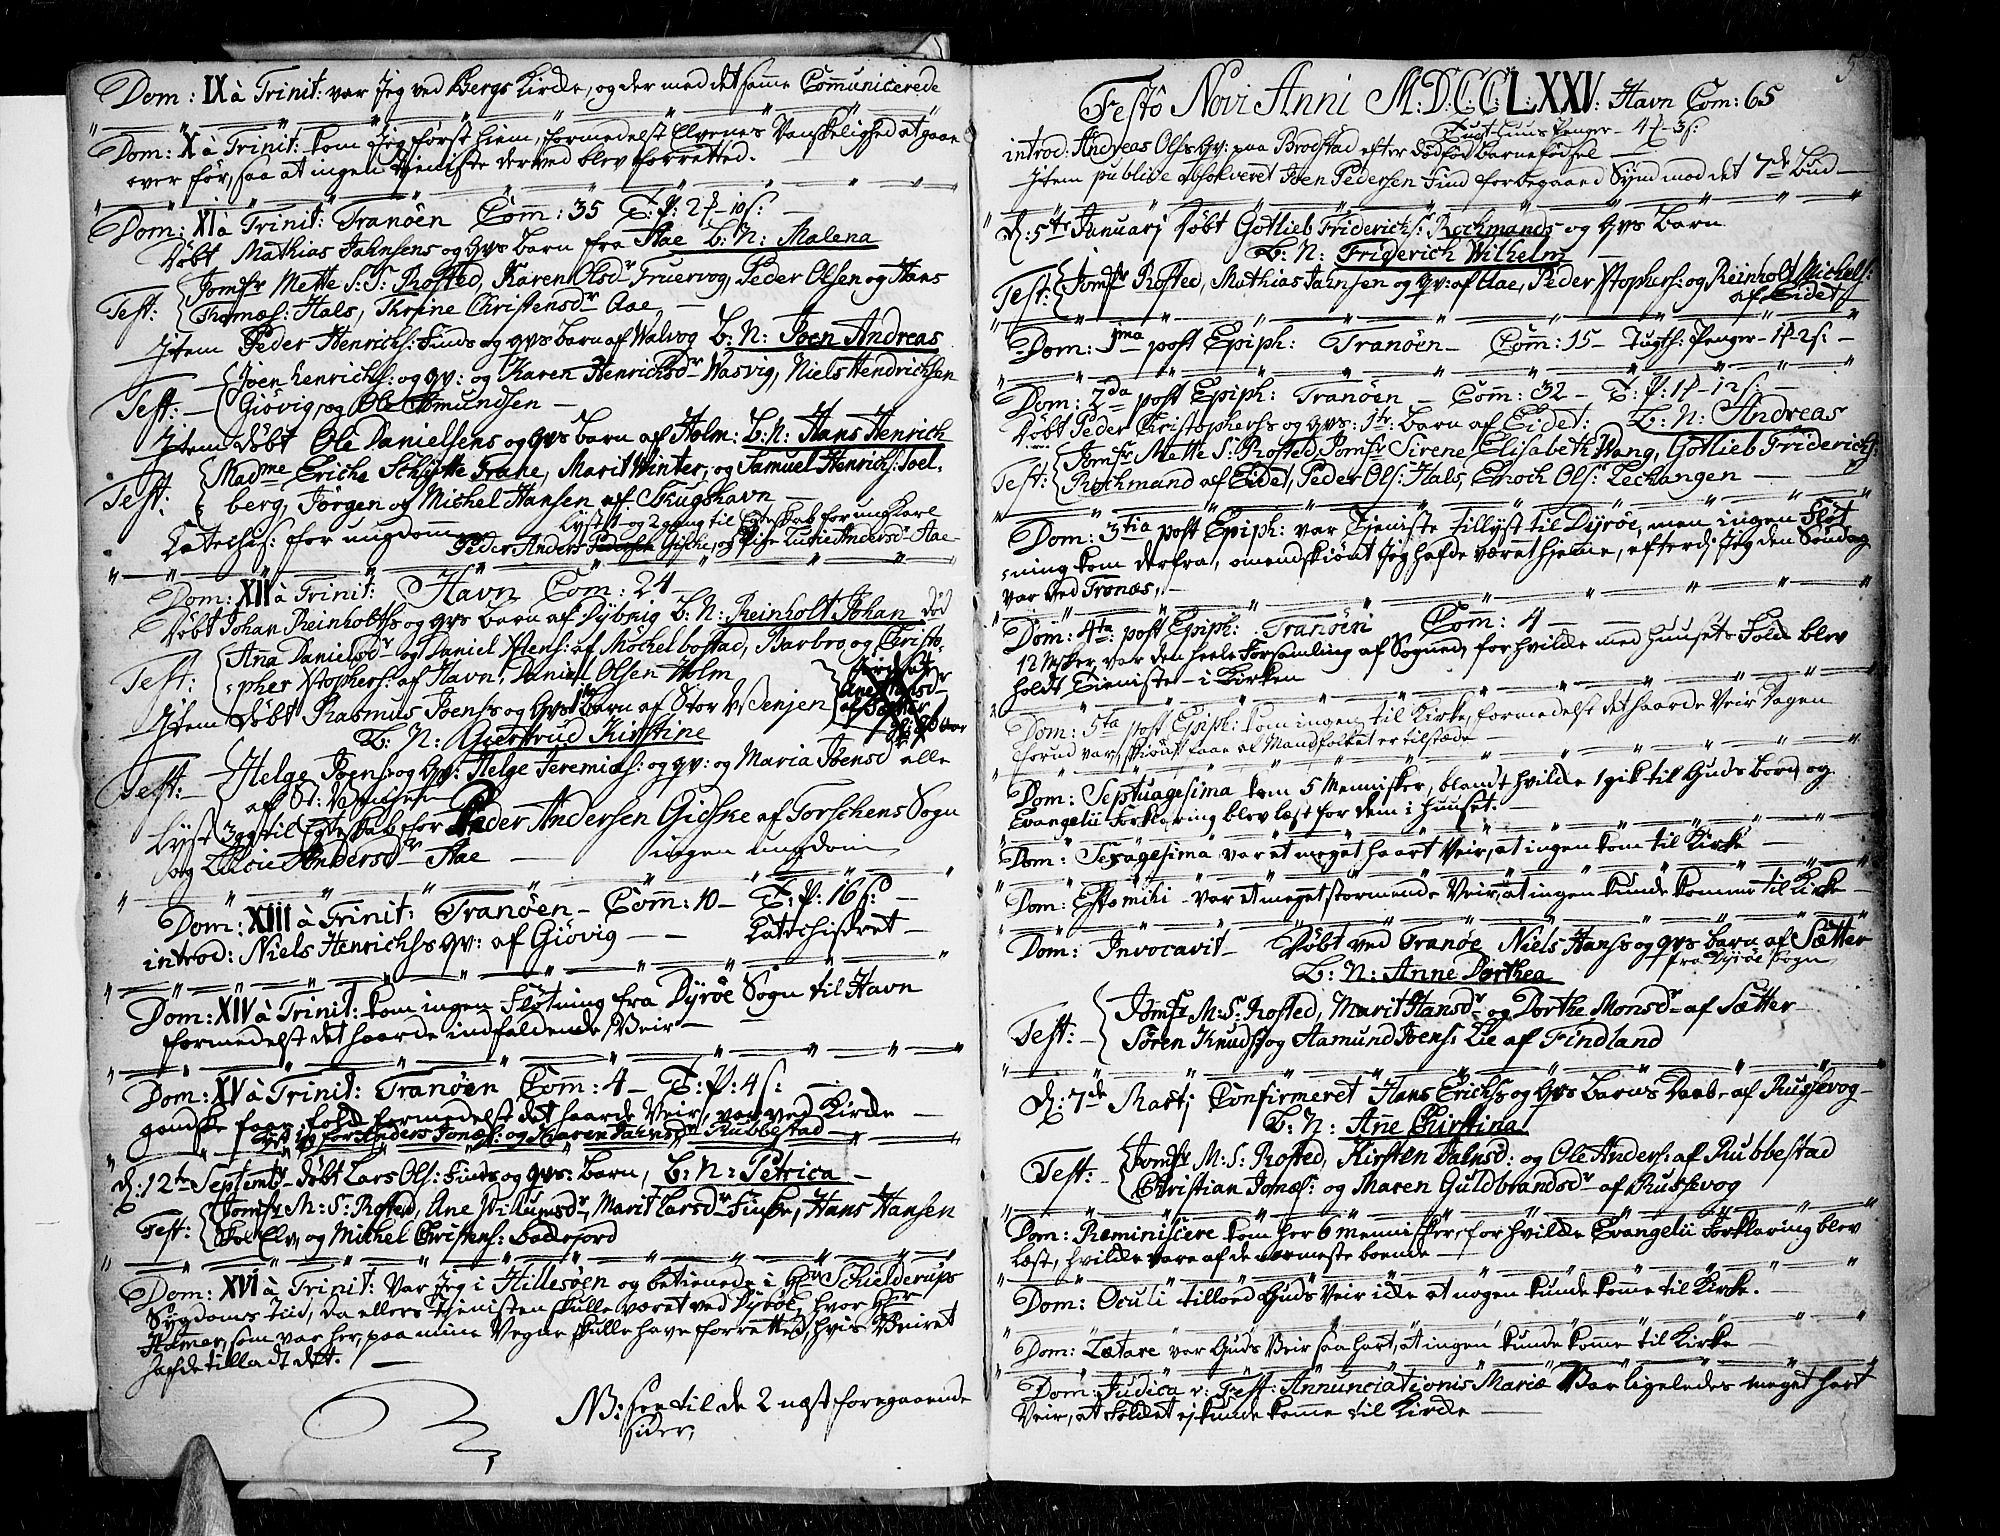 Dom: IX à Trinit: var Jeg ved Bergs Kirke, og der med det samme Communicerede
Dom: X à Trinit: kom Jeg først hiem, formedelst Elvenes Vanskelighed at gaae
over før, saa at ingen Tieniste derved blev forrettet.
Dom: XI à Trinit: Tranöen Com: 35 T: P: 2 f - 10 s:
Döbt Mathias Jahnsens og qvs Barn fra Aae B: N: Malena
Test: Jomfr Mette S: S: Rosted, Karen Olsdr Truervog, Peder Olsen og Hans
Thomæs: Hals, Thrine Christensdr Aae
Item Peder Henrichs: Finds og qvs barn af Walvog B: N: Joen Andreas
Test: Joen Henrichs: og qv: og Karen Henrichsdr Wasvig, Niels Hendrichsen
Giövig, og Ole Amundsen
Item döbt Ole Daniellsens og qvs barn af Holm: B: N: Hans Henrich
Test: Madme Erica Schytte Trane, Marit Winter, og Samuel Henrichs: Soel-
berg, Jörgen og Michel Hansen af Skugshavn
Catechis: for ungdom Lyst 1 og 2 gang til Egteskab for ungKarl
Peder Anders Gidske, og Pige Lucie Andersdr Aae
Dom: XII à Trinit: Havn Com: 24
Döbt Johan Reinholths og qvs barn af Dybvig B: N: Reinholt Johan död
Test: Ana Danielsdr og Daniel af Möckelbostad, Barbro og Christo-
pher Xtophers: af Havn, Daniel Olsen Holm
Item Döbt Rasmus Joens og qvs barn af Stor Wenjen
B: N: Giertrud Kirstine
Test: Helge Joens: og qv: Helge Jeremias: og qv: og Maria Joensd alle
af St:
Lyst 3 gg til Egteskab for Peder Andersen Gidske af Torschens Sogn
og Lucie Andersdr Aae ingen ungdom
Dom: XIII à Trinit: Tranöen Com: 10 T: P: 16 s:
introd: Niels Henrichs qv: af Giövig Catechiseret
Dom: XIV à Trinit: kom ingen Fløtning fra Dyröe Sogn til Havn
formedelst det haarde indfaldende Veir
Dom: XV à Trinit: Tranöen Com: 4 T: P: 4 s:
gandske faae folk formedelst det haarde Veir, var ved Kirke
Lyst for Anders Jonæs: og Karen Jahnsdr Rubbestad
d: 12te Septembr döbt Lars Ols: Finds og qvs: barn, B: N: Petrica
Test: Jomfr M: S: Rosted, Ane Marit Larsdr Finke, Hans Hansen
Elv, og Michel Christens: Baltesfiord
Dom: XVI à Trinit: Var Jeg i Hillesöen og betienede i Hr: Schielderups
Sygdoms Tiid, da ellers Tienisten skulle været ved Dyröe, hvor Herr
Holmer, som var her, paa mine Vegne skulle have forrettet, hvis Veiret
hafde tilladt det.
NB: see til de 2 næst foregaaende
sider,
5
Festo Novi Anni M.D.C.C.LXXV: Havn Com: 65
Tugt-Huus Penger - 4 f - 3 s:
introd: Andreas Ols qv: paa Brostad efter dödfød Barnefödsel
Item publice absolveret Joen Pedersen Find for begaaend Synd mod det 7de Bud
d: 5te Januarj döbt Gotlieb Friderichs: Rochmands og qvs barn
B: N: Friderich Wilhelm
Test: Jomfr Rosted, Mathias Jahnsen og qv: af Aae, Peder Xtophers: og Reinholt Michels:
af Eidet
Dom: 1ma post Epiph: Tranöen Com: 15 Tugts: Penger 1 f - 2 s:
Dom: 2da post Epiph: Tranöen Com: 32 T: P: 1 f - 12 s:
Döbt Peder Christophers og qvs: 1te barn af Eidet: B: N: Andreas
Test: Jomfr Mette S: Rosted, Jomfr Sirene Elisabeth Wang, Gotlieb Friderichs:
Rochmand af Eidet, Peder Ols: Hals, Enoch Ols: Lechangen
Dom: 3tia post Epiph: var Tieniste tillyst til Dyröe, men ingen Fløt-
ning kom derfra, omendskiönt Jeg hafde været hjeme, efterdj Jeg den Söndag
var ved Tronæs,
Dom: 4ta: post Epiph: Tranöen Com: 4
12 Msker, var den heele Forsamling af Sognet, for hvilke med huusets Folk blev
holdt Tieniste i Kirken
Dom: 5ta post Epiph: kom ingen til Kirke, formedelst det haarde Veir Dagen
forud var, skiönt faae af Mandfolket er tilstæde
Dom: Septuagesima kom 5 Mennisker, blandt hvilke 1 gik til Guds bord, og
Evangelii Forklaring blev læst for dem i huuset.
Dom: Sexagesima var et meget haart Veir, at ingen kom til Kirke
Dom: Estomihi var et meget stormende Veir, at ingen kunde komme til Kirke
Dom: Invocavit Döbt ved Tranöe Niels Hans og qvs barn af Sætter
fra Dyröe Sogn
B: N: Anne Dorthea
Test: Jomfr M: S: Rosted, Marit Hansdr og Dorthe Monsdr af Sætter
Sören Knuds: og Aamund Joens: Lie af Findland
d: 7de Martj Confirmeret Hans Erichs og qvs Barns Daab af Russevog
B: N: Ane Chirstina
Test: Jomfr M: S: Rosted, Kirsten Jahnsd: og Ole Anders: af Rubbestad
Christian Jonæs: og Maren Guldbrandsdr af Russevog
Dom: Reminiscere kom her 6 mennisker, for hvilke Evangelii Forklaring blev
læst, hvilke vare af de nærmeste boende
Dom: Oculi tillod Guds Veir ikke at nogen kunde komme til Kirke.
Dom: Lætare var Guds Veir saa hart, at ingen kunde komme til Kirke
Dom: Judica v: Fest: Annunciationis Mariæ Var ligeledes meget hart
Veir, at Folket ej kunde komme til Kirke